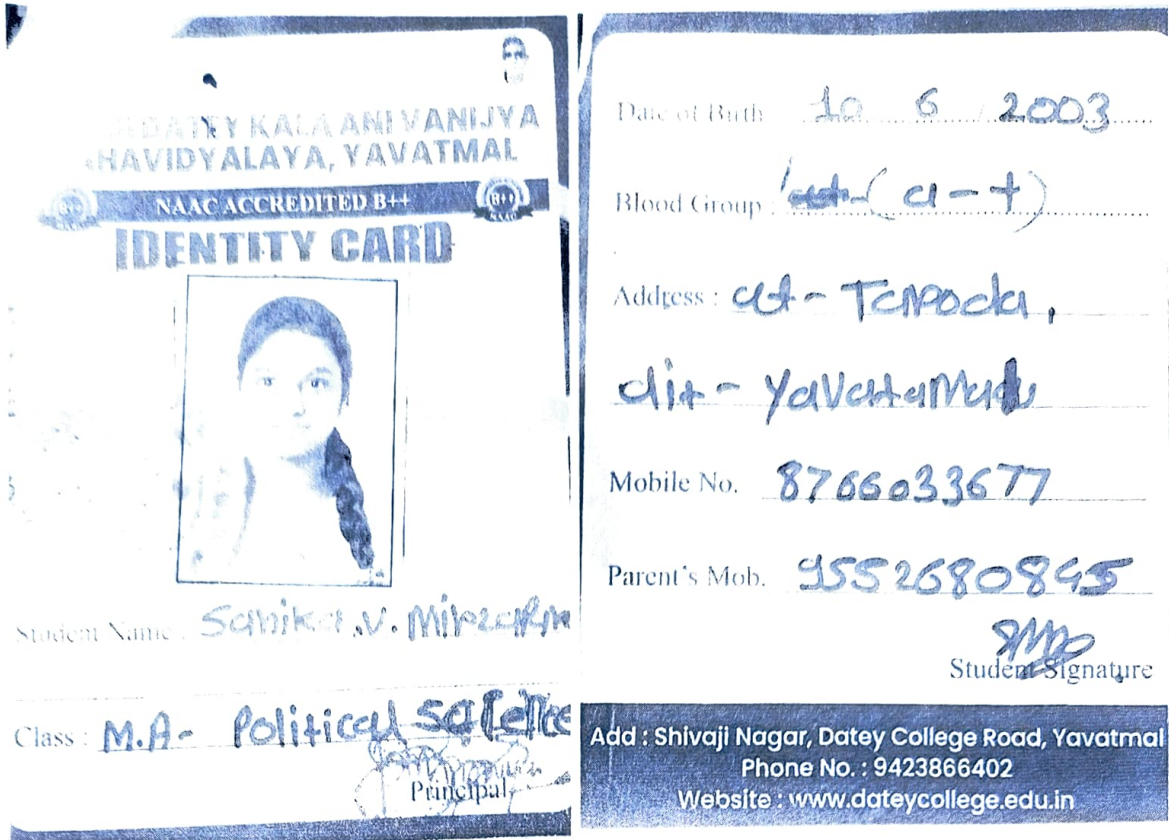 DATEY KALA ANI VANIJYA
HAVIDYALAYA, YAVATMAL
B++ NAAC ACCREDITED B++ B++
NAAC NAAC
IDENTITY CARD
Student Name : Sanika .V.
Class : M.A- Political Science
Principal
Date of Birth 10 6 2003
Blood Group : (a-+)
Address : at- Tarpoda,
dit- Yavatamal
Mobile No. 8766033677
Parent's Mob. 9552680845
Student Signature
Add : Shivaji Nagar, Datey College Road, Yavatmal
Phone No. : 9423866402
Website : www.dateycollege.edu.in